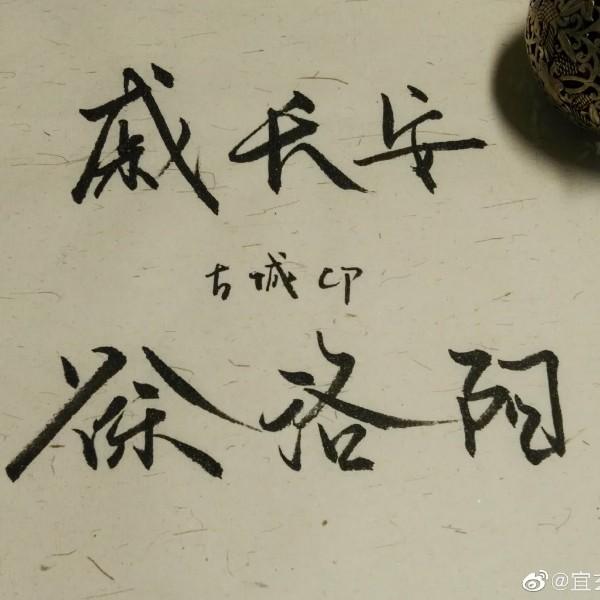 戚长安
古城印
蔡洛阳
@宜